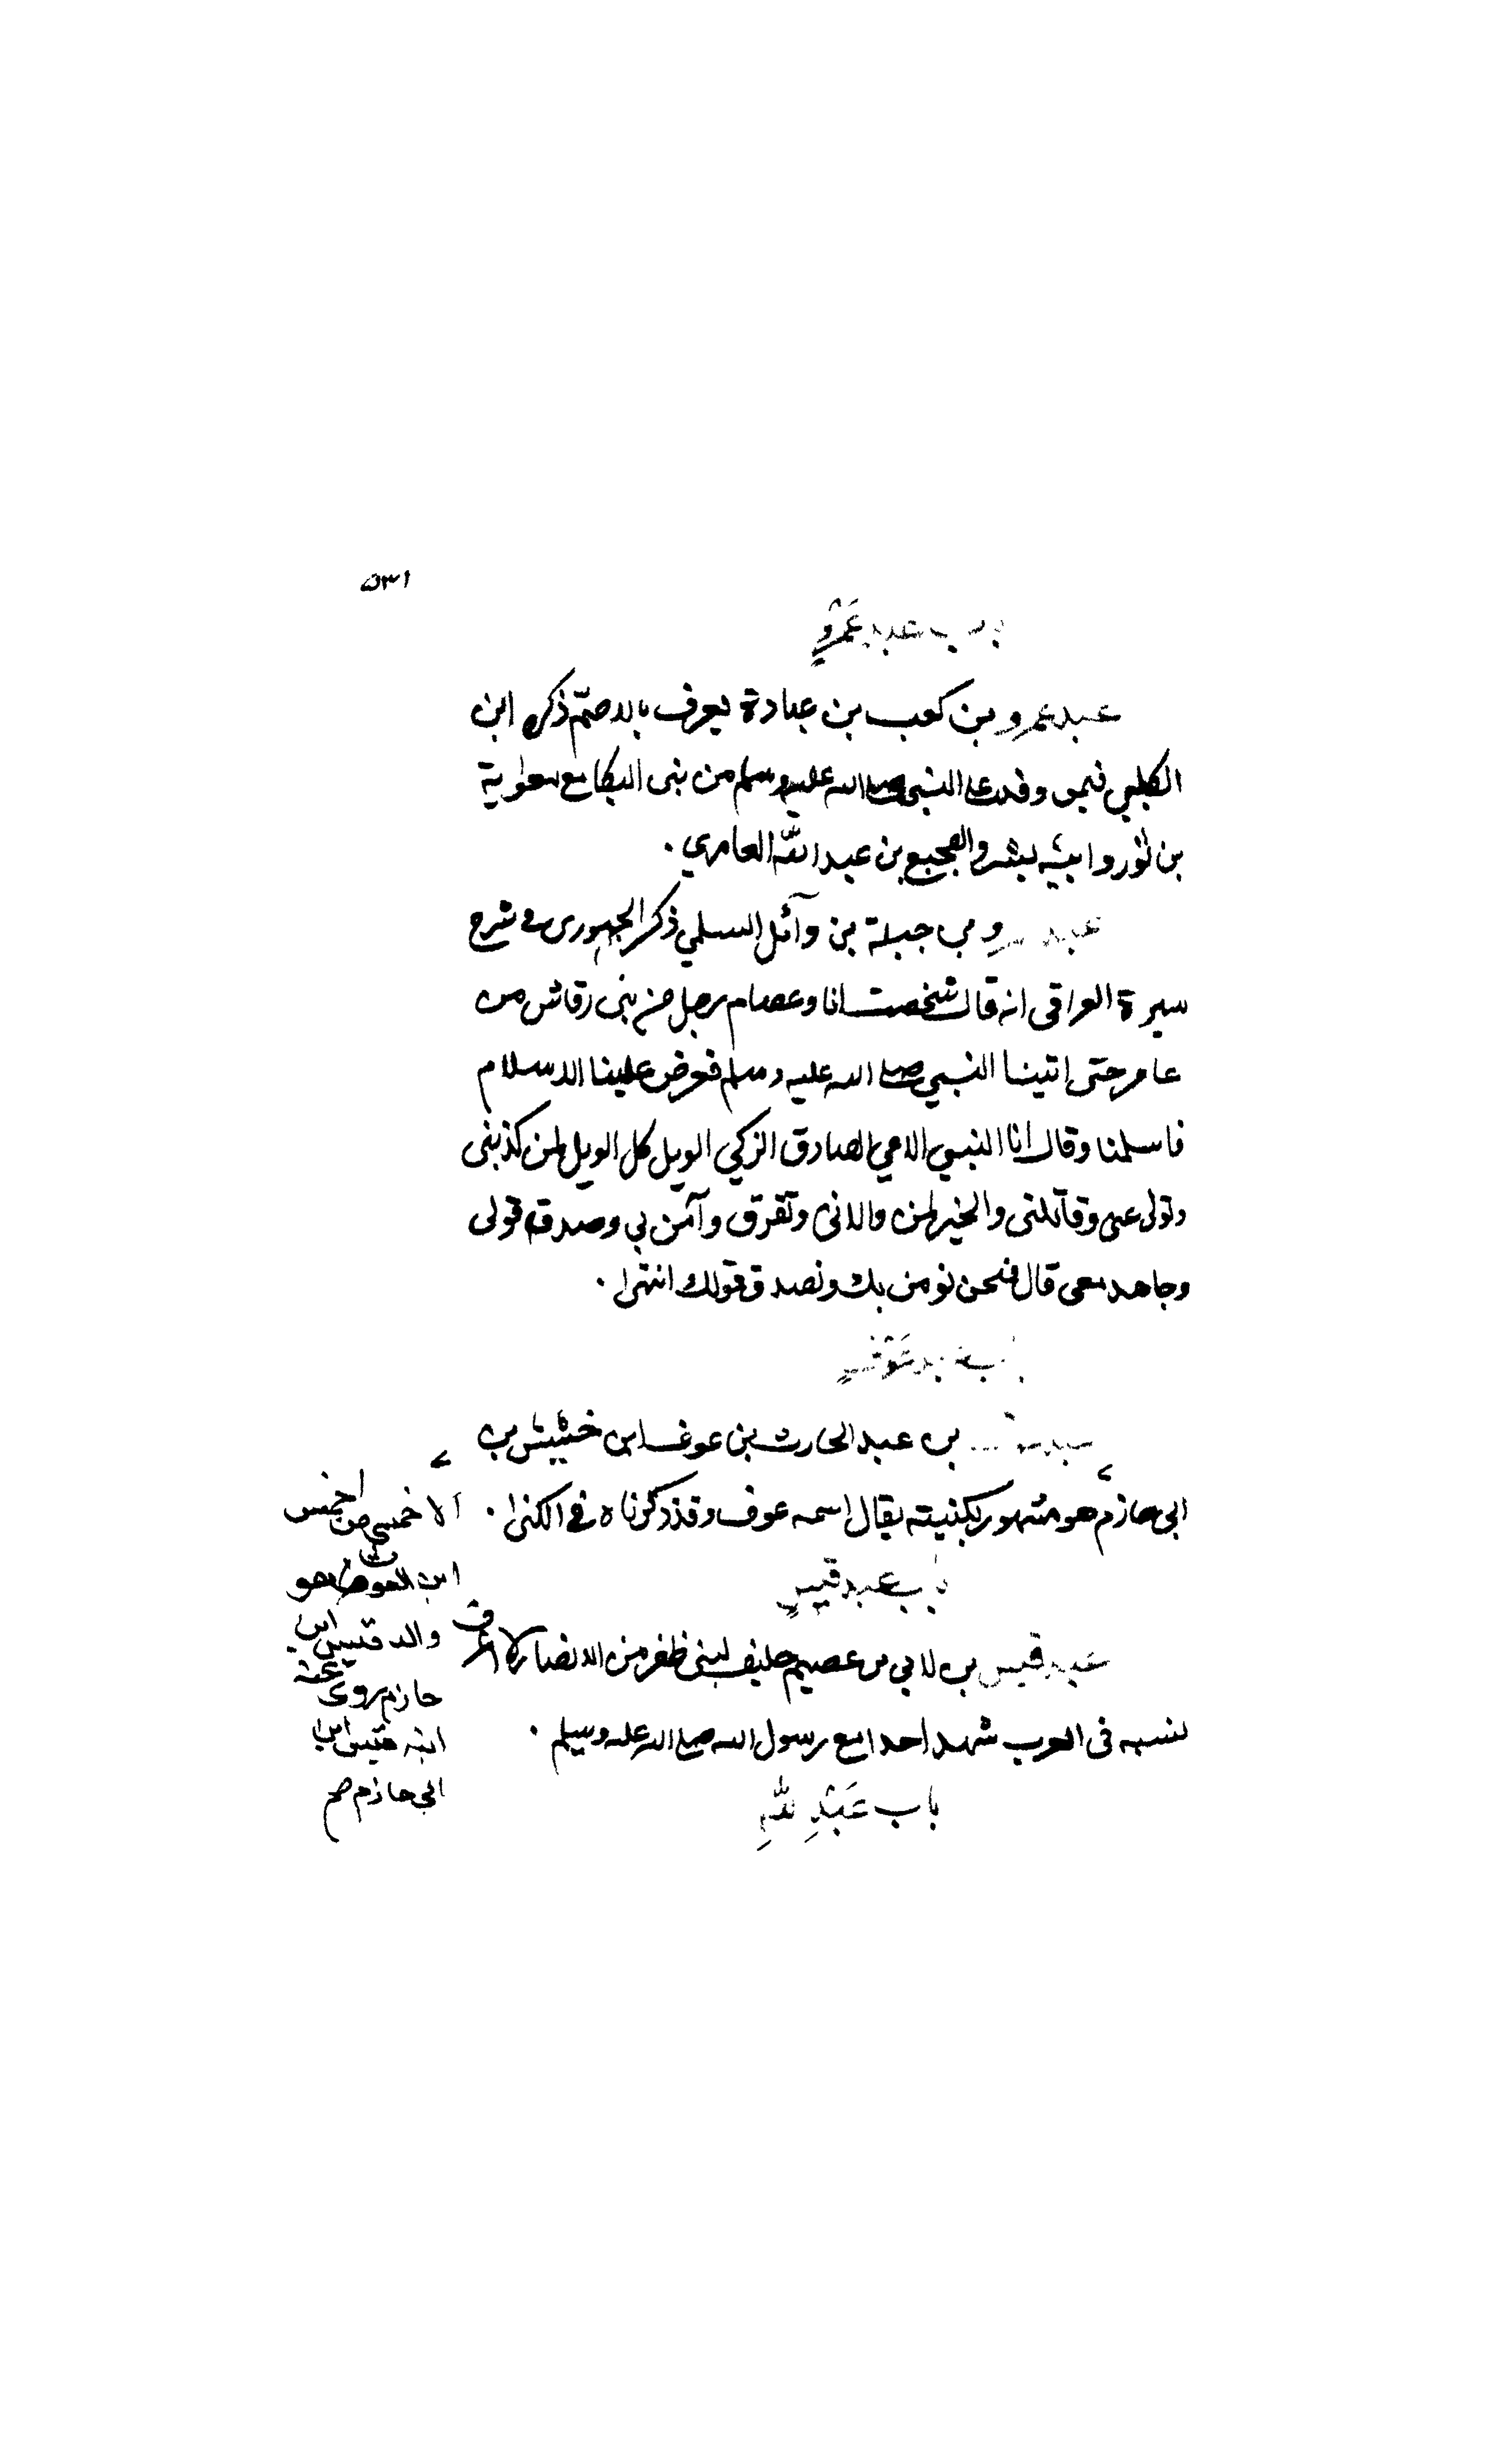 ٥٣١
باب عبد عَمْرٍو
عبد عمرو بن كعب بن عبادة يعرف بالاصمّ ذكره ابن
الكلبي فيمن وفد على النبي صلى الله عليه وسلم من بنى البكا مع معاوية
بن ثور وابنيه بشر والفجيع بن عبد الله العامري ٠
عبد عمرو بن جبلة بن وآئل السلمي ذكر الجهوري فى شرح
سيرة العراقى انه قال شخصت انا وعصام رجل من بنى رقاش من
عامر حتى اتينا النبي صلى الله عليه وسلم فعرض علينا الاسلام
فاسلمنا وقال انا النبي الامي الصادق الزكي الويل كل الويل لمن كذبنى
وتولى عنى وقاتلنى والخير لمن والانى وتفرق وآمن بي وصدق قولى
وجاهد معى قال فنحن نومن بك ونصدق قولك انتهى ٠
باب عبد عَوْفٍ
عبد عوف بن عبد الحارث بن عوف ابن خشيش بن
ابى حازم هو مشهور بكنيته يقال اسمه عوف وقد ذكرناه فى الكنى ٠
باب عبد قيسٍ
عبد قيس بن لابي بن عصيم حليف لبنى ظفر من الانصار لا اعرف
نسبه فى العرب شهد احدا مع رسول الله صلى الله عليه وسلم ٠
باب عَبْدِ اللهِ
الاخمسي من اخمس
ابن الغوث وهو
والد قيس ابن
حازم روى عنه
ابنه قيس ابن
ابى حازم صح